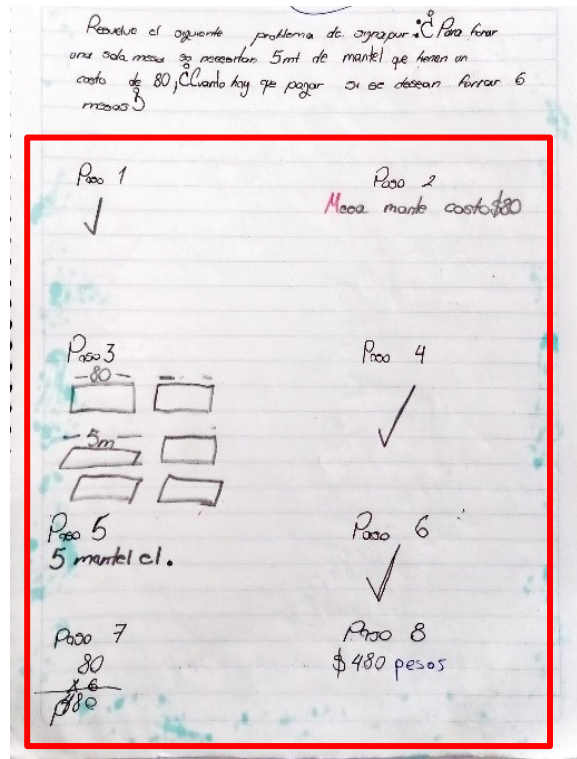 Resuelve el siguiente problema de singapur: ¿Para forar
una sola mesa se necesitan 5mt de mantel que tienen un
costo de 80, ¿Cuanto hay que pagar si se desean forrar 6
mesas?
Paso 1
Paso 2
Mesa mante costo $80
Paso 3
80
5m
Paso 4
Paso 5
5 mantel cl.
Paso 6
Paso 7
80
x 6
480
Paso 8
$480 pesos